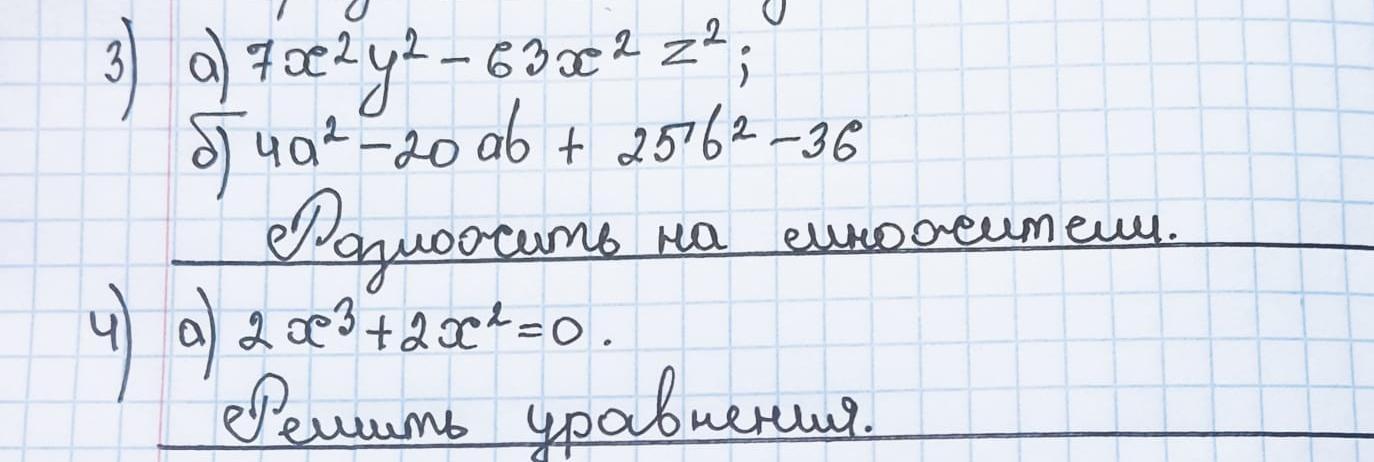 3) а) 7x²y² - 63x² z²;
б) 4a² - 20 ab + 25b² - 36
Разложить на множители.
4) а) 2x³ + 2x² = 0.
Решить уравнения.